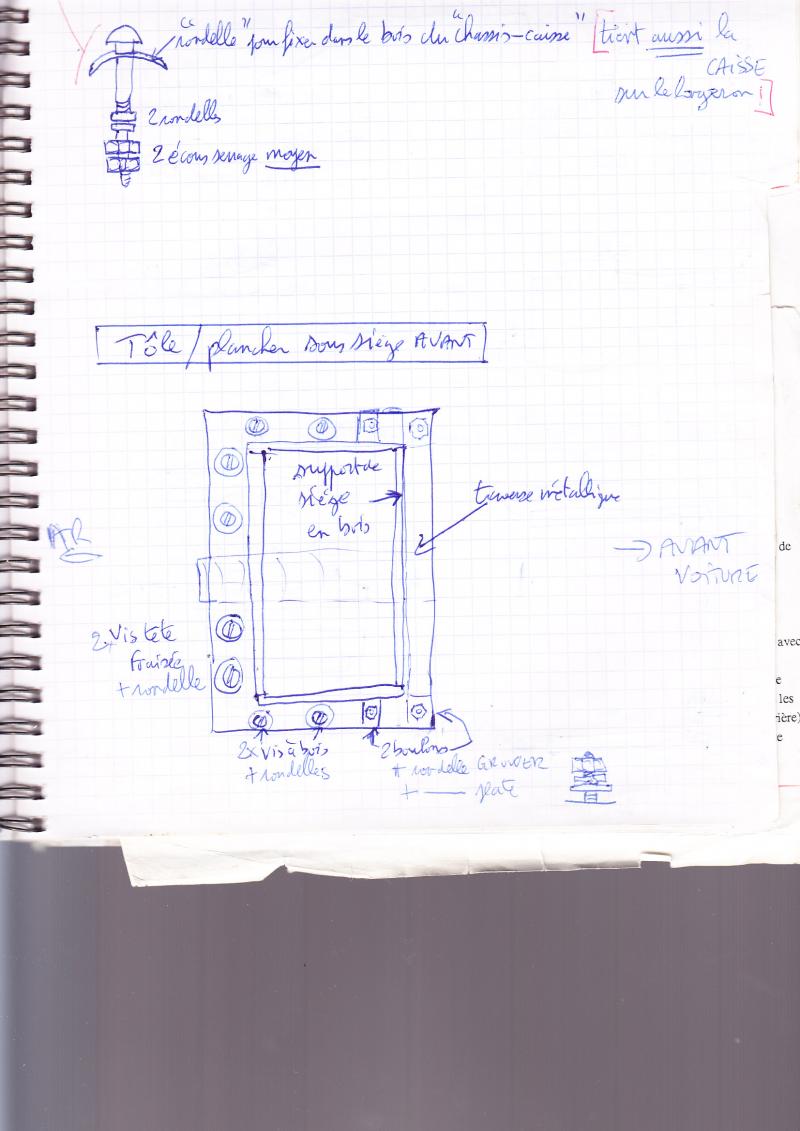 "rondelle" pour fixer dans le bois du "chassis-caisse" [tient aussi la
CAISSE
sur le longeron !]
2 rondelles
2 écrous serrage moyen
Tôle / plancher sous siège AVANT
support de
siège
en bois
traverse métallique
AR
→ AVANT
VOITURE
2x Vis tête
fraisée
+ rondelle
2x Vis à bois
+ rondelles
2 boulons
+ rondelle GROWER
+ — plate
de
avec
e
les
ière)
e